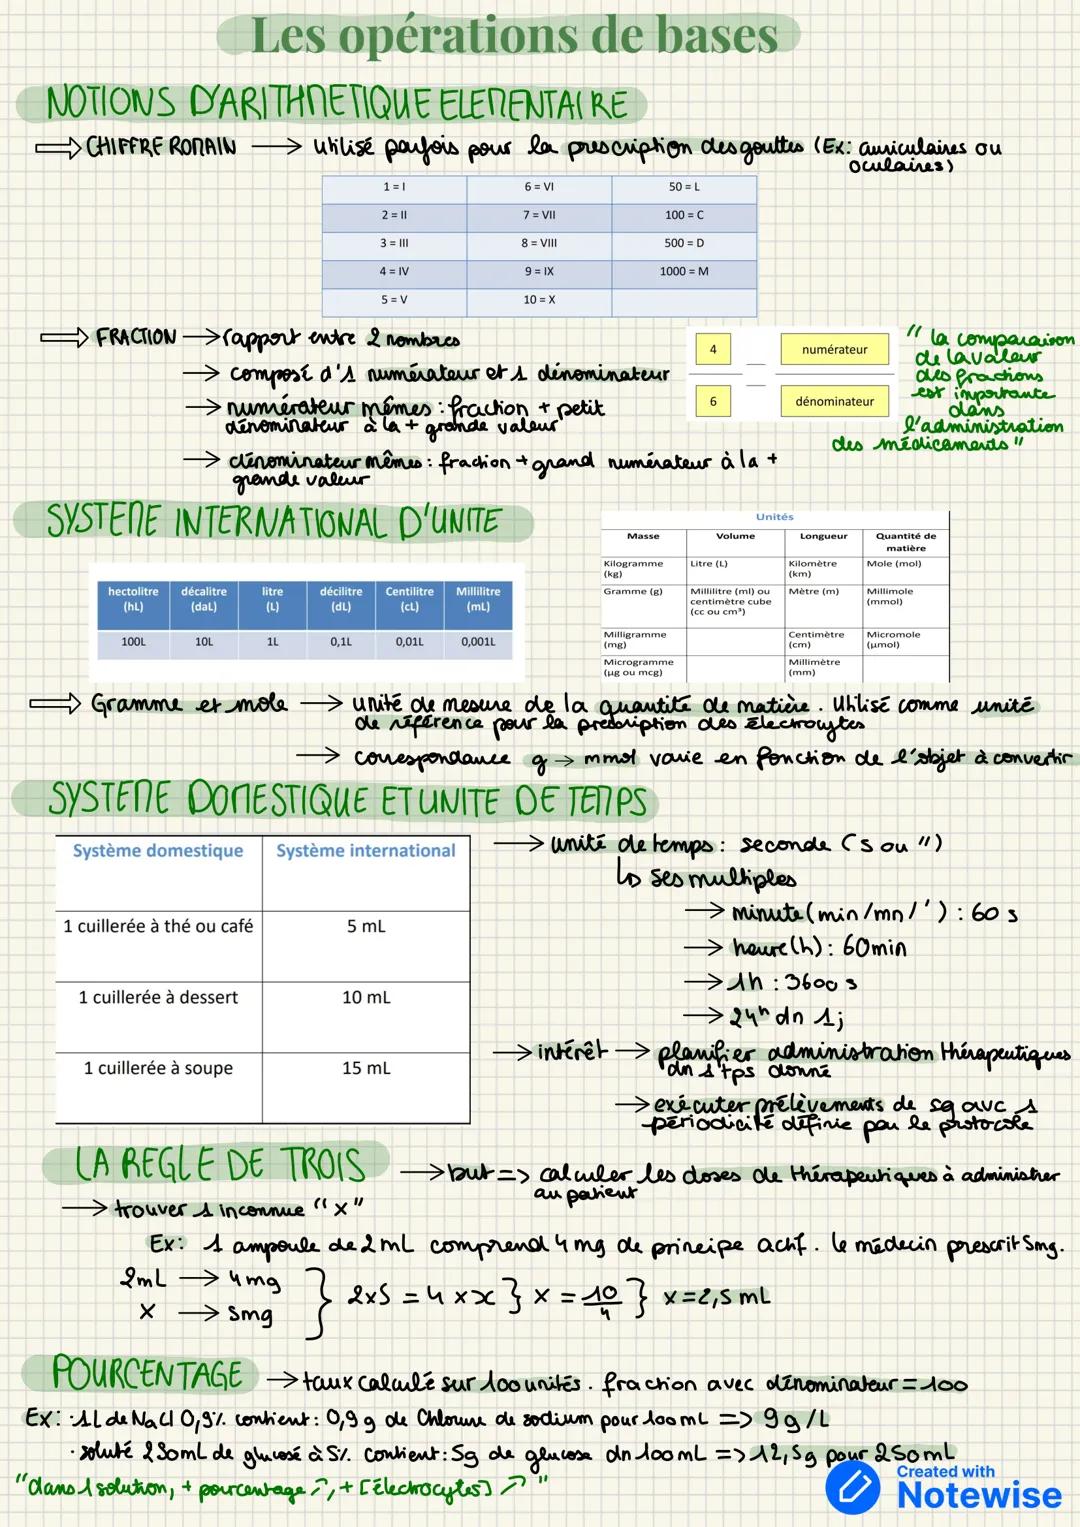 Les opérations de bases
NOTIONS D'ARITHMETIQUE ELEMENTAIRE
⇒ CHIFFRE ROMAIN → utilisé parfois pour la prescription des gouttes (Ex: auriculaires ou
oculaires)
1 = I 6 = VI 50 = L
2 = II 7 = VII 100 = C
3 = III 8 = VIII 500 = D
4 = IV 9 = IX 1000 = M
5 = V 10 = X
⇒ FRACTION → rapport entre 2 nombres
→ composé d'1 numérateur et 1 dénominateur
→ numérateur mêmes : fraction + petit
dénominateur à la + grande valeur
→ dénominateur mêmes : fraction + grand numérateur à la +
grande valeur
4 numérateur
6 dénominateur
" la comparaison
de la valeur
des fractions
est importante
dans
l'administration
des médicaments "
SYSTEME INTERNATIONAL D'UNITE
hectolitre (hL) décalitre (daL) litre (L) décilitre (dL) Centilitre (cL) Millilitre (mL)
100L 10L 1L 0,1L 0,01L 0,001L
Unités
Masse Volume Longueur Quantité de matière
Kilogramme (kg) Litre (L) Kilomètre (km) Mole (mol)
Gramme (g) Millilitre (ml) ou centimètre cube (cc ou cm³) Mètre (m) Millimole (mmol)
Milligramme (mg) Centimètre (cm) Micromole (µmol)
Microgramme (µg ou mcg) Millimètre (mm)
⇒ Gramme et mole → unité de mesure de la quantité de matière. Utilisé comme unité
de référence pour la prescription des électrocytes
→ correspondance g → mmol varie en fonction de l'objet à convertir
SYSTEME DOMESTIQUE ET UNITE DE TEMPS
Système domestique Système international
1 cuillerée à thé ou café 5 mL
1 cuillerée à dessert 10 mL
1 cuillerée à soupe 15 mL
→ unité de temps : seconde (s ou ")
↳ ses multiples
→ minute (min/mn/') : 60 s
→ heure (h) : 60min
→ 1h : 3600 s
→ 24h dn 1j
→ intérêt → planifier administration thérapeutiques
dn 1 tps donné
→ exécuter prélèvements de sg avc 1
périodicité définie par le protocole
LA REGLE DE TROIS → but => calculer les doses de thérapeutiques à administrer
au patient
→ trouver 1 inconnue "x"
Ex: 1 ampoule de 2 mL comprend 4 mg de principe actif. le médecin prescrit 5mg.
2mL → 4mg
X → 5mg
} 2x5 = 4 x x } x = 10/4 } x = 2,5 mL
POURCENTAGE → taux calculé sur 100 unités. fraction avec dénominateur = 100
Ex: · 1L de NaCl 0,9% contient : 0,9 g de Chlorure de sodium pour 100 mL => 9g/L
· soluté 250mL de glucosé à 5% contient : 5g de glucose dn 100 mL => 12,5g pour 250 mL
"dans 1 solution, + pourcentage ↗, + [électrocytes] ↗ "
Created with
Notewise